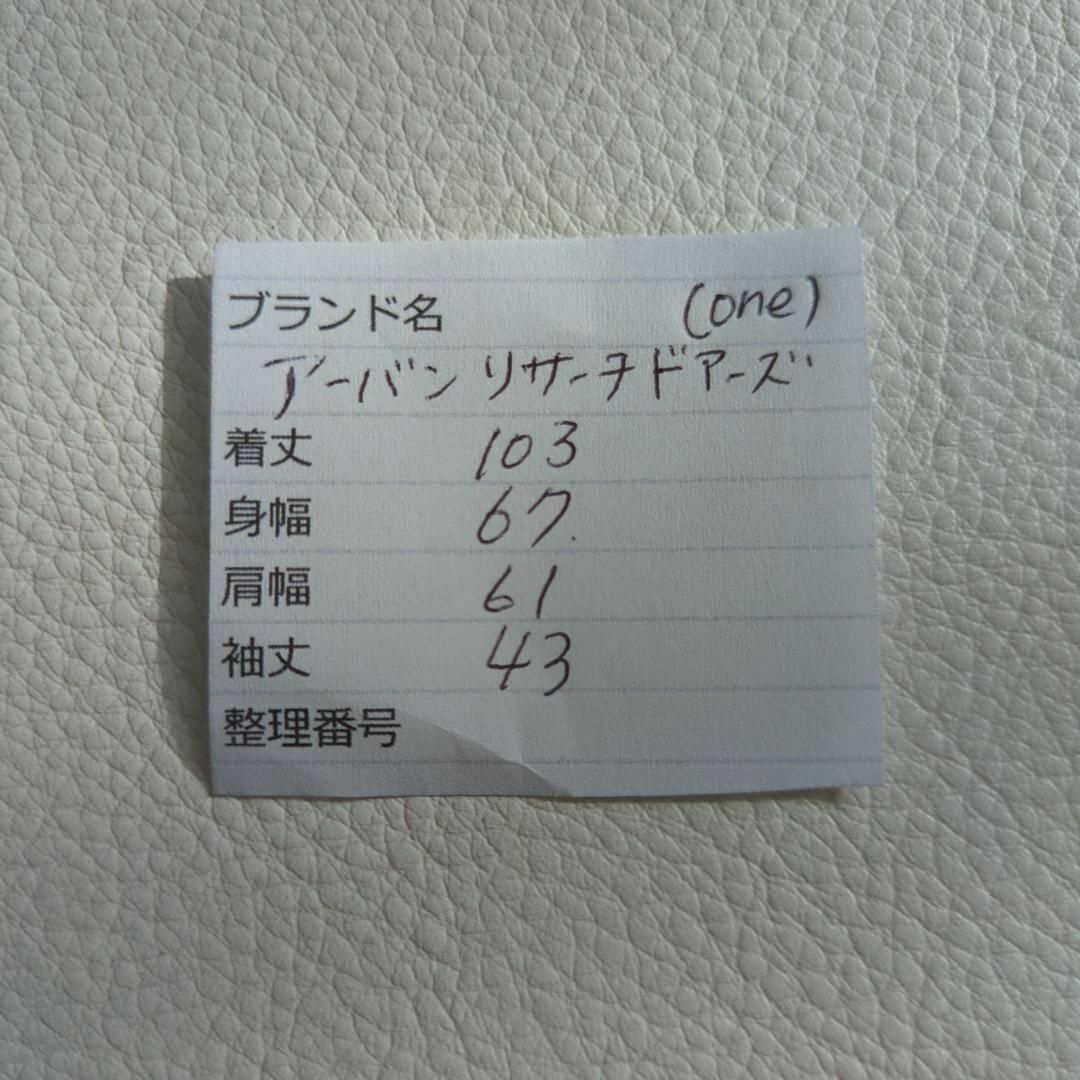 ブランド名 (one)
アーバンリサーチドアーズ
着丈 103
身幅 67.
肩幅 61
袖丈 43
整理番号